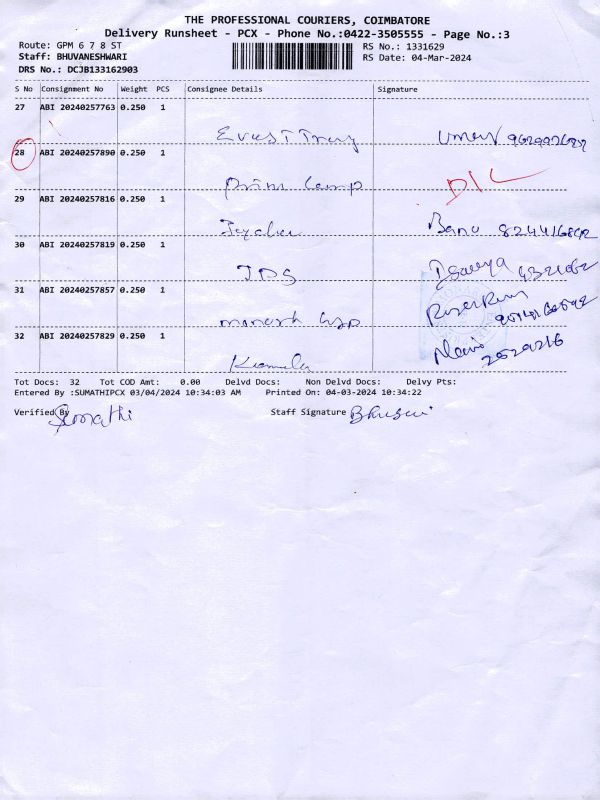 THE PROFESSIONAL COURIERS, COIMBATORE
Delivery Runsheet - PCX - Phone No.:0422-3505555 - Page No.:3
Route: GPM 6 7 8 ST
RS No.: 1331629
Staff: BHUVANESHWARI
RS Date: 04-Mar-2024
DRS No.: DCJB133162903
S No Consignment No Weight PCS Consignee Details Signature
27 ABI 20240257763 0.250 1
28 ABI 20240257890 0.250 1
D/L
29 ABI 20240257816 0.250 1
Banu
30 ABI 20240257819 0.250 1
JDS
31 ABI 20240257857 0.250 1
32 ABI 20240257829 0.250 1
Tot Docs: 32 Tot COD Amt: 0.00 Delvd Docs: Non Delvd Docs: Delvy Pts:
Entered By :SUMATHIPCX 03/04/2024 10:34:03 AM Printed On: 04-03-2024 10:34:22
Verified By Sumathi Staff Signature